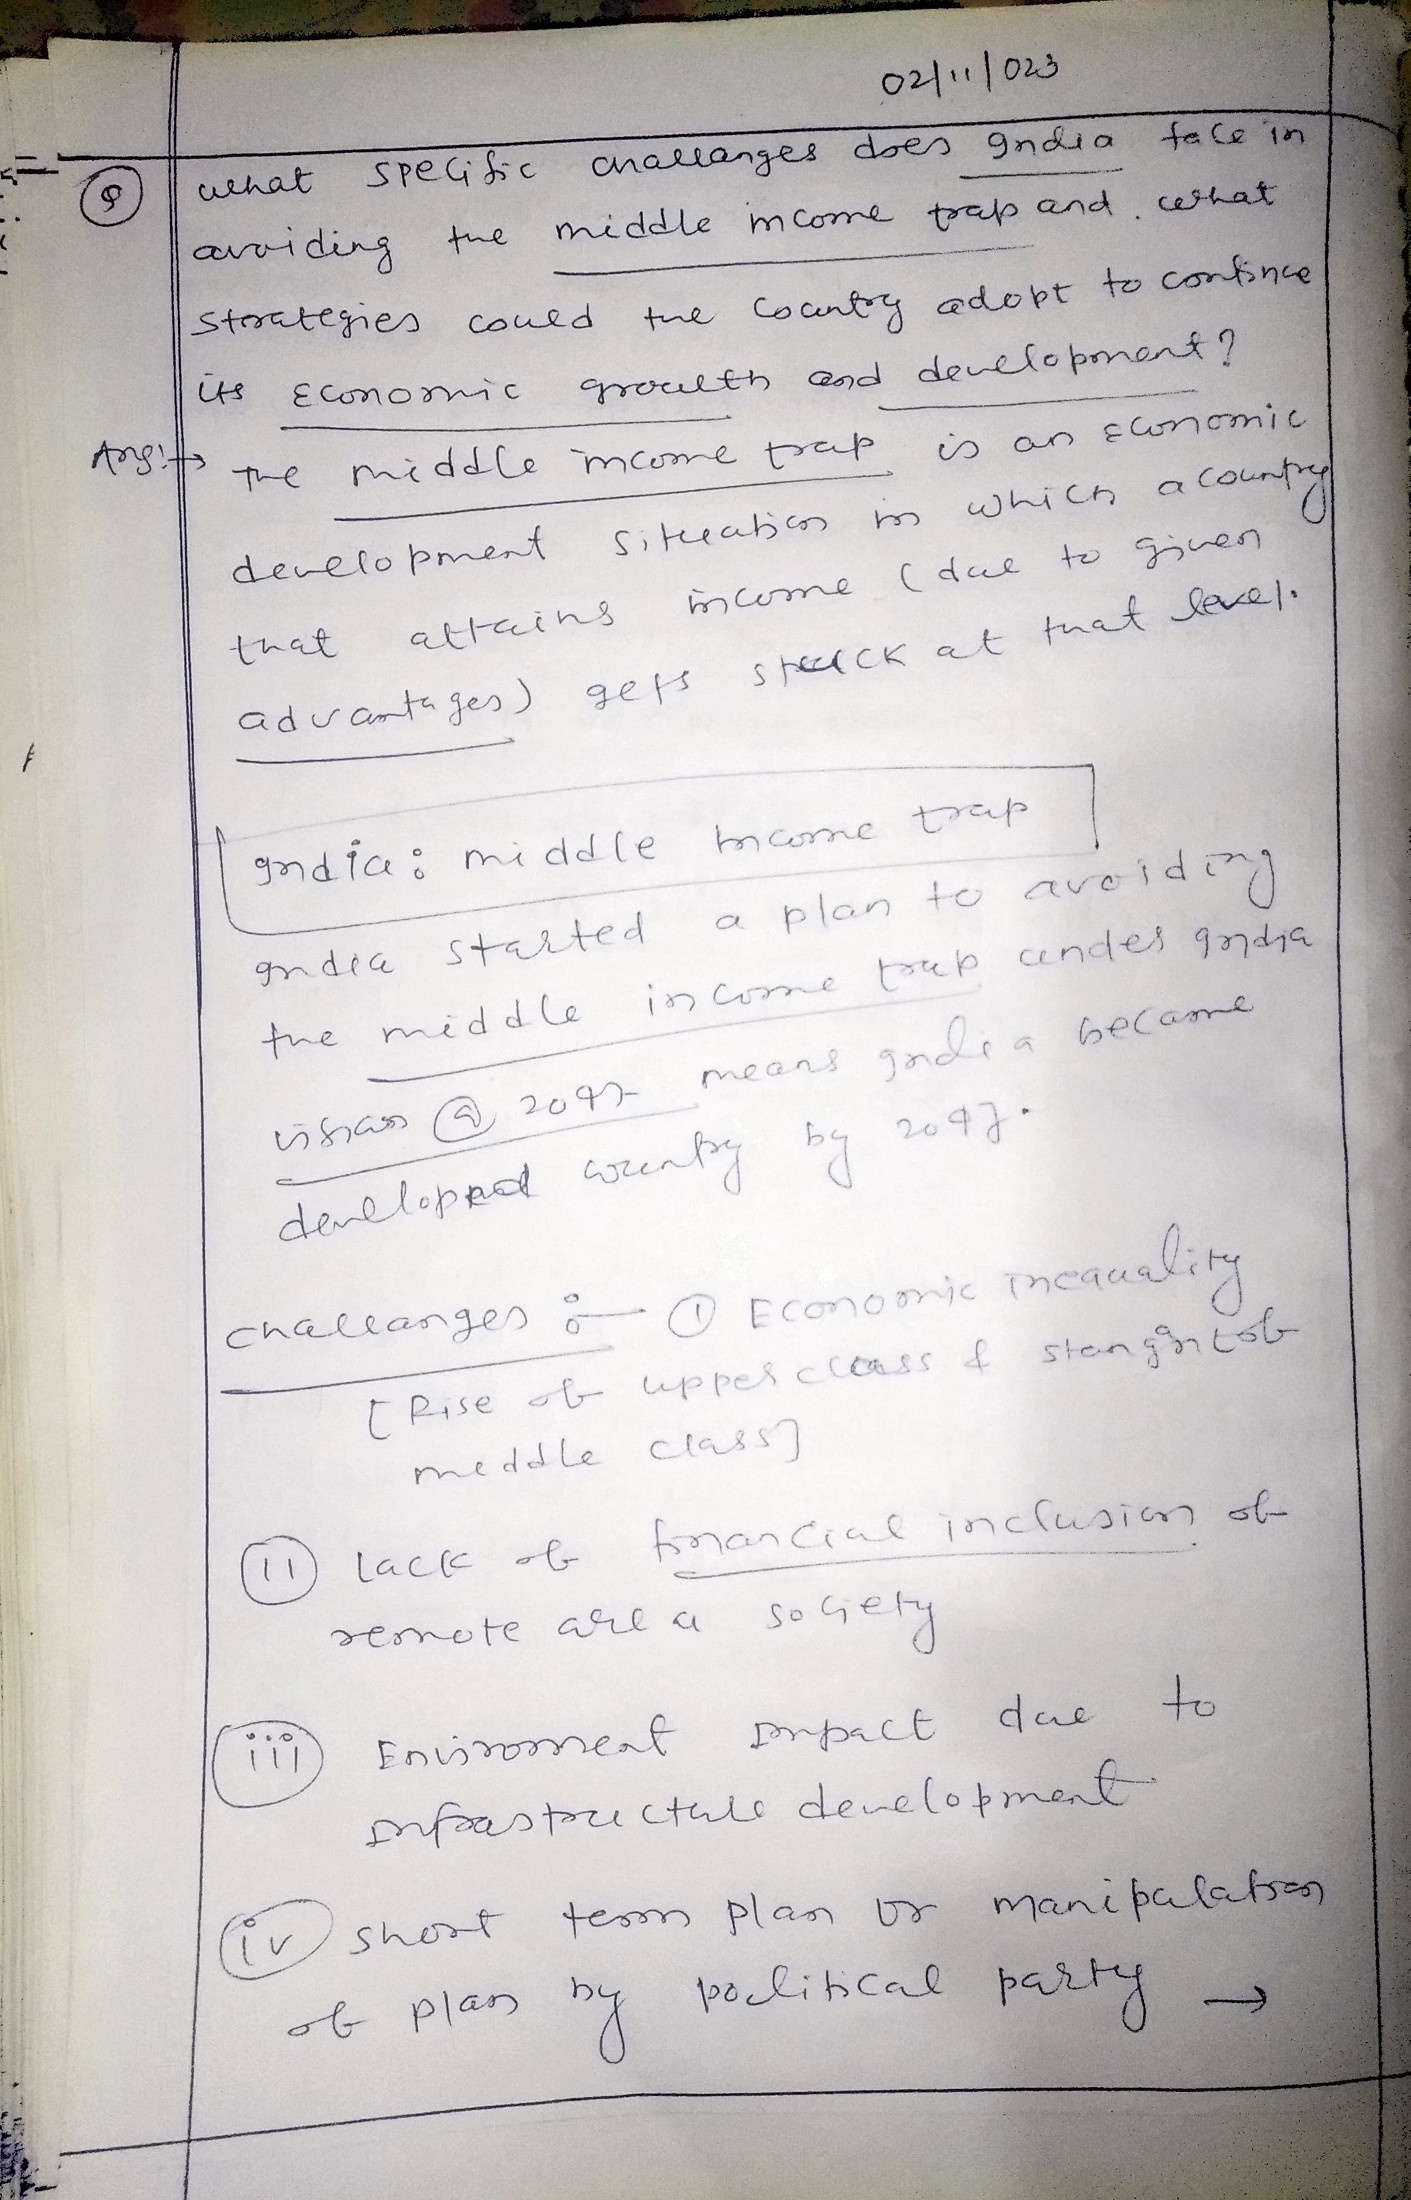 02/11/023
Q what specific challanges does India face in
avoiding the middle income trap and what
strategies could the country adopt to continue
its economic growth and development?
Ans:→ The middle income trap is an economic
development situation in which a country
that attains income (due to given
advantages) gets stuck at that level.
India: middle Income trap
India started a plan to avoiding
the middle income trap under India
vision @ 2047 means India became
developed country by 2047.
challanges :— ① Economic inequality
[Rise of upper class & of
middle class]
(ii) Lack of financial inclusion of
remote area society
(iii) Enviroment Impact due to
Infrastructure development
(iv) short term plan or manipulation
of plan by political party →